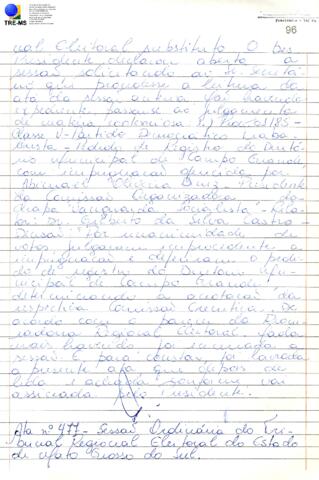 TRE-MS
96
nal Eleitoral substituto. O Des.
Presidente declarou aberta a
sessão solicitando ao Sr. Secretá-
rio que procedesse a leitura da
ata da sessão anterior. foi havendo
expediente, passou-se ao julgamento
da matéria contenciosa:
Classe V - Partido Democrático Traba-
lhista - Pedido de Registro do Diretó-
rio Municipal de Campo Grande
com impugnação oferecida por
Diniz - Presidente
da Comissão Organizadora da
Chapa Vanguarda Socialista - Rela-
tor: Dr. da Silva Castro -
Decisão: Por unanimidade de
votos, julgaram improcedente a
impugnação e deferiram o pedi-
do de registro do Diretório Mu-
nicipal de Campo Grande,
determinando a anotação da
respectiva Comissão Executiva. De
acordo com o parecer do Procu-
rador Regional Eleitoral. Nada
mais havendo foi encerrada a
sessão. E, para constar, foi lavrada
a presente ata que depois de
lida e achada conforme, vai
assinada pelo Presidente.
Ata nº 477 - Sessão Ordinária do Tri-
bunal Regional Eleitoral do Estado
de Mato Grosso do Sul.